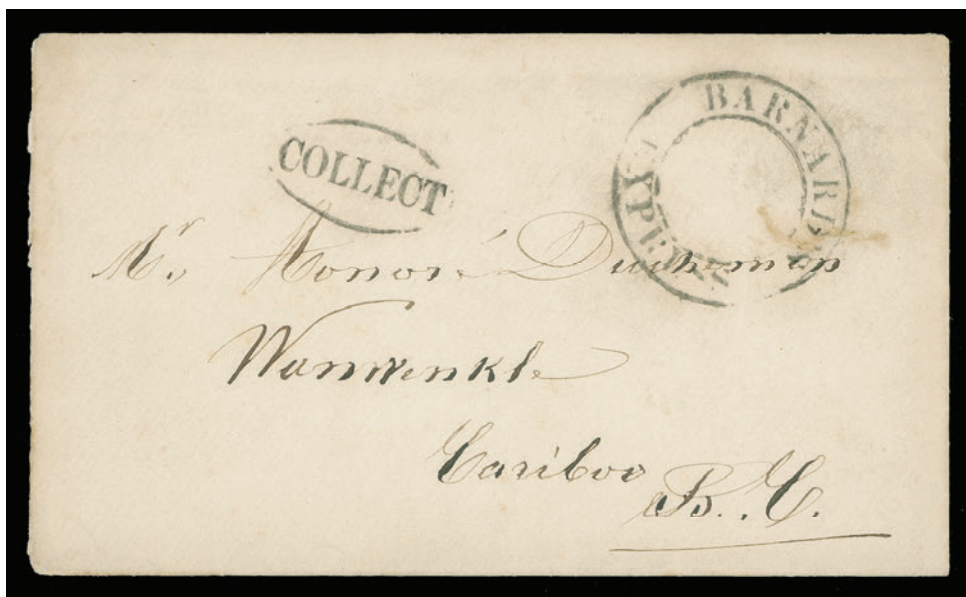 COLLECT
BARNARD'S EXPRESS
Mr. Honoré Ducheman
Wanwenkle
Cariboo
B. C.